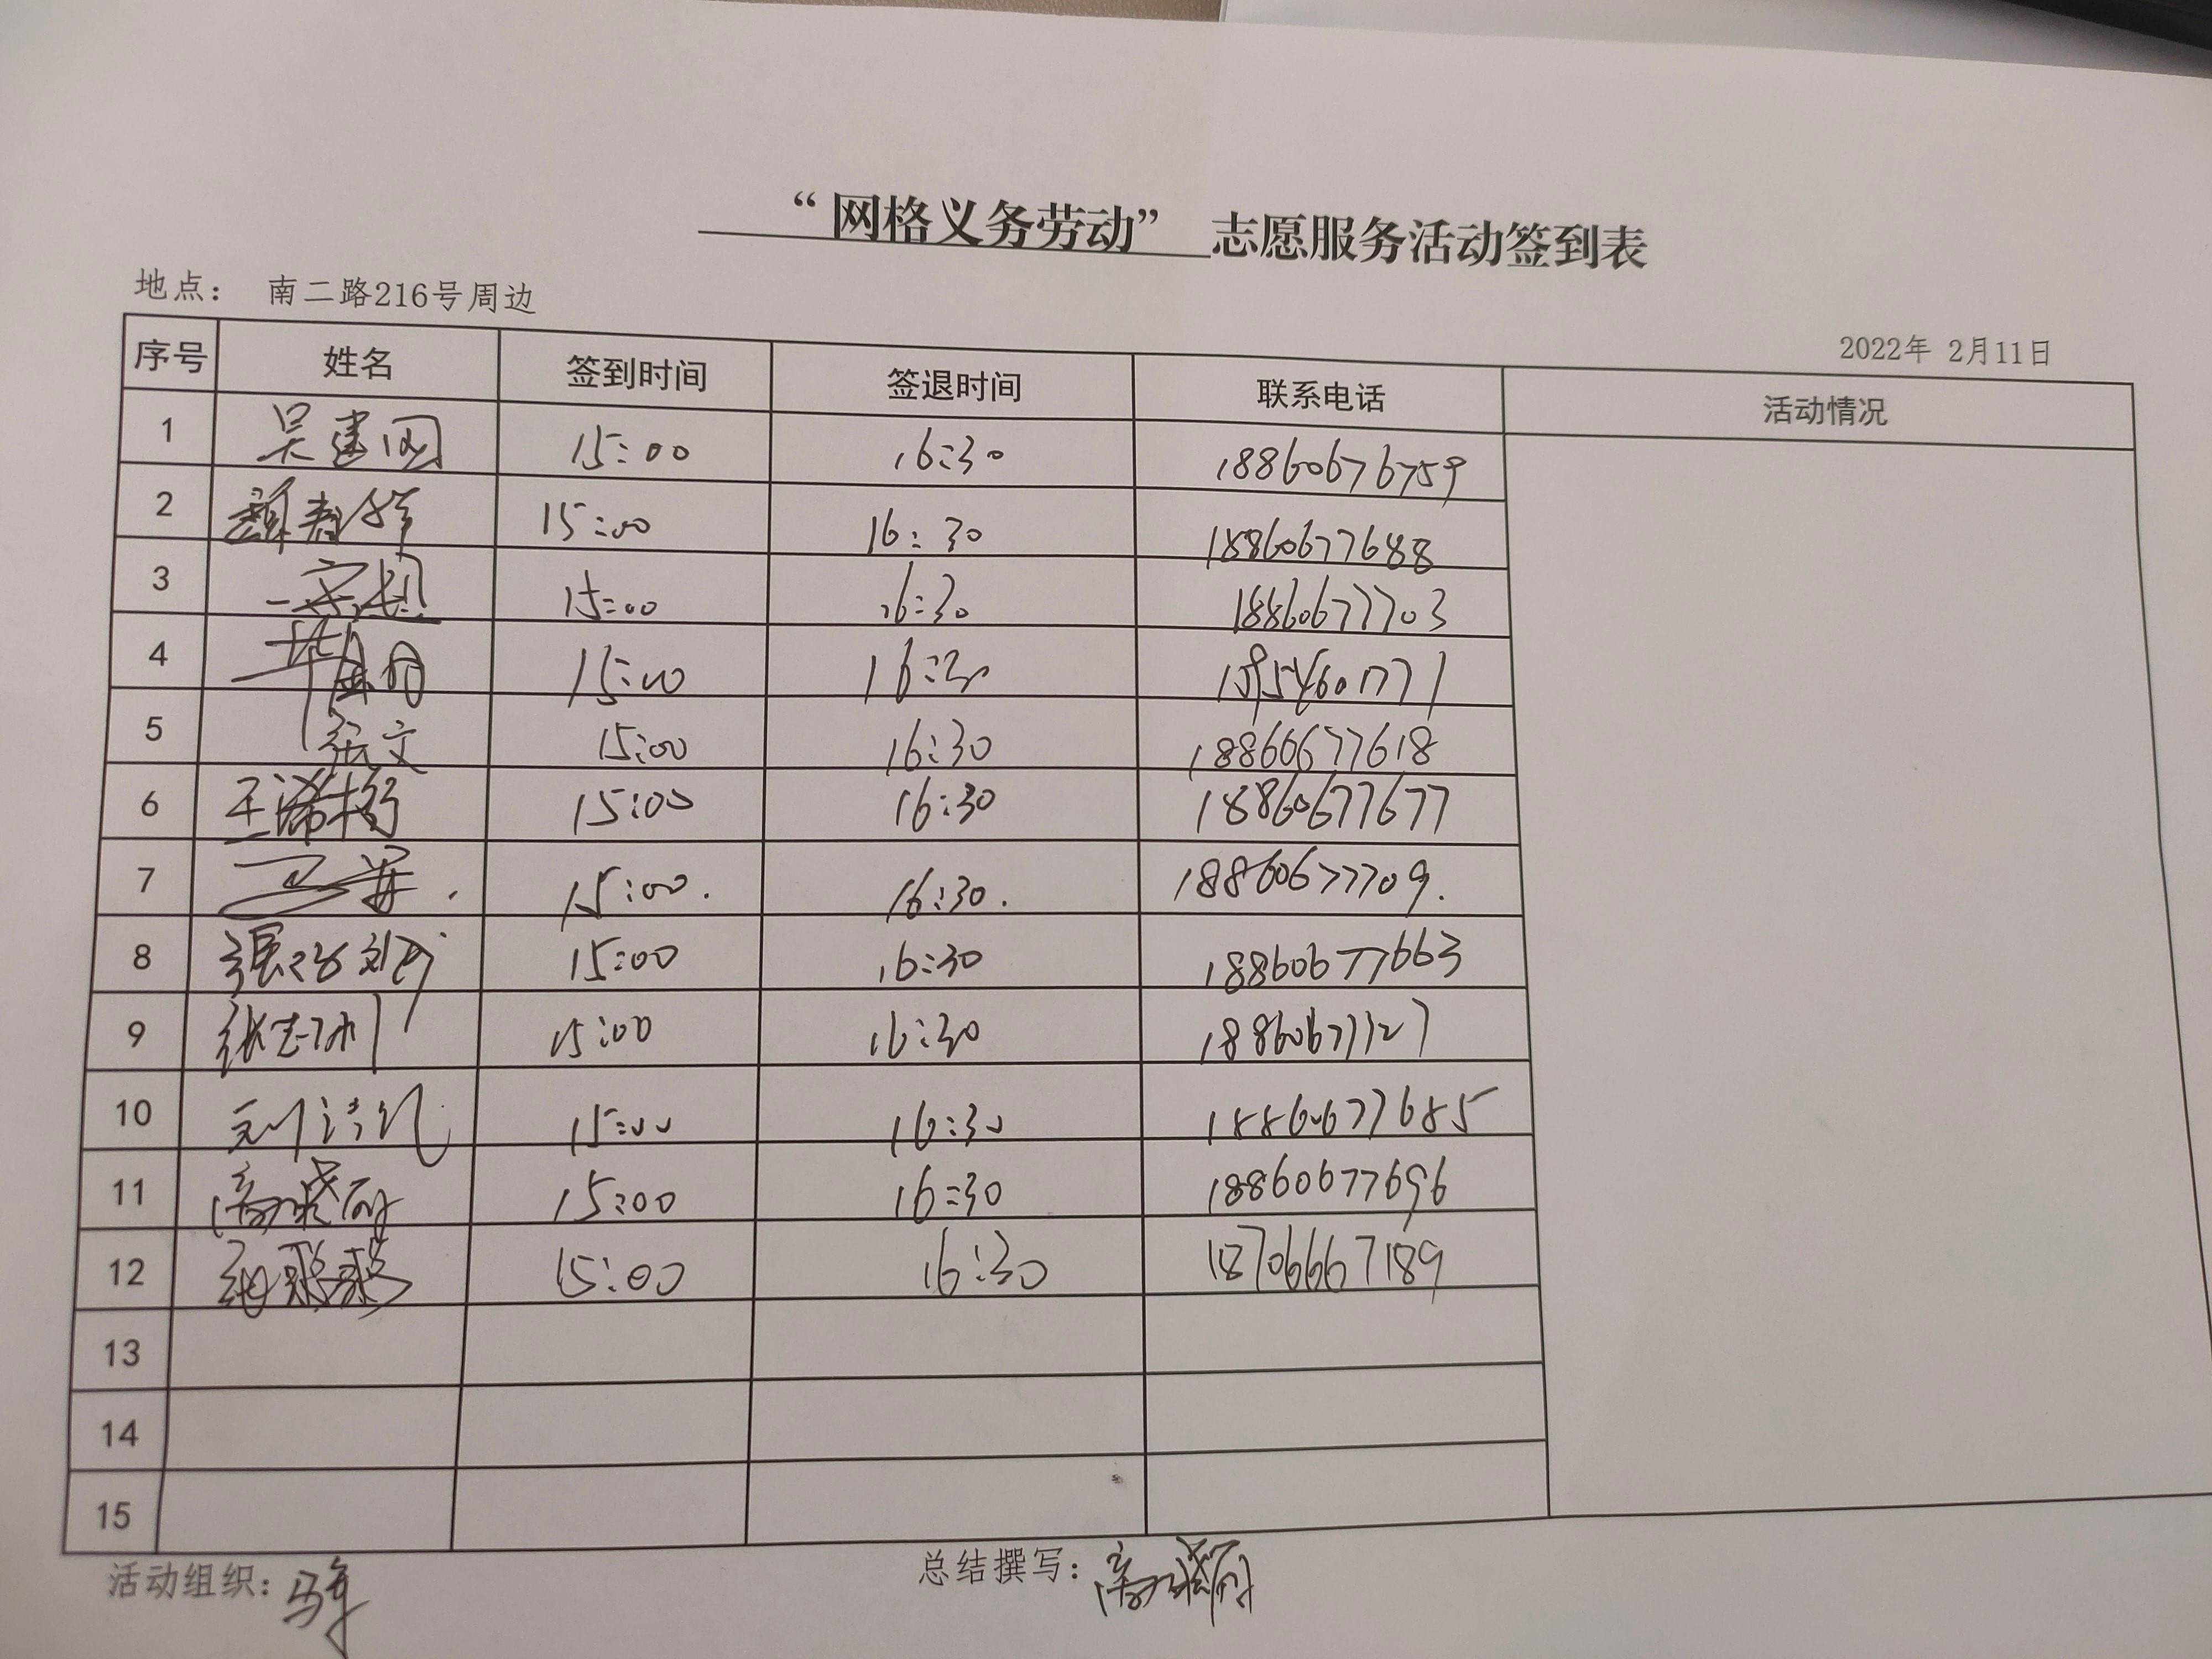 “网格义务劳动” 志愿服务活动签到表
地点： 南二路216号周边
2022年 2月11日
序号 姓名 签到时间 签退时间 联系电话 活动情况
1 吴建国 15:00 16:30 18860676759
2 15:00 16:30 18860677688
3 15:00 16:30 18860677703
4 15:00 16:30
5 张文 15:00 16:30 18860677618
6 15:00 16:30 18860677677
7 15:00. 16:30. 18860677709.
8 15:00 16:30 18860677663
9 15:00 16:30
10 15:00 16:30 18860677685
11 15:00 16:30 18860677696
12 15:00 16:30 18706667189
13
14
15
活动组织：
总结撰写：